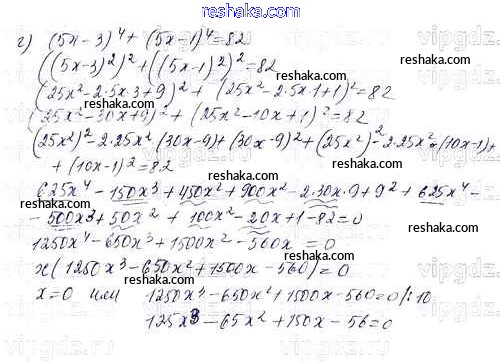 reshaka.com
г) (5x-3)⁴ + (5x-1)⁴ = 82
((5x-3)²)² + ((5x-1)²)² = 82
(25x² - 2·5x·3 + 9)² + (25x² - 2·5x·1 + 1)² = 82
(25x² - 30x + 9)² + (25x² - 10x + 1)² = 82
(25x²)² - 2·25x²(30x-9) + (30x-9)² + (25x²)² - 2·25x²·(10x-1) +
+ (10x-1)² = 82
625x⁴ - 150x³ + 450x² + 900x² - 2·30x·9 + 9² + 625x⁴ -
- 500x³ + 50x² + 100x² - 20x + 1 - 82 = 0
1250x⁴ - 650x³ + 1500x² - 560x = 0
x(1250x³ - 650x² + 1500x - 560) = 0
x = 0 или 1250x³ - 650x² + 1500x - 560 = 0 /:10
125x³ - 65x² + 150x - 56 = 0
reshaka.com